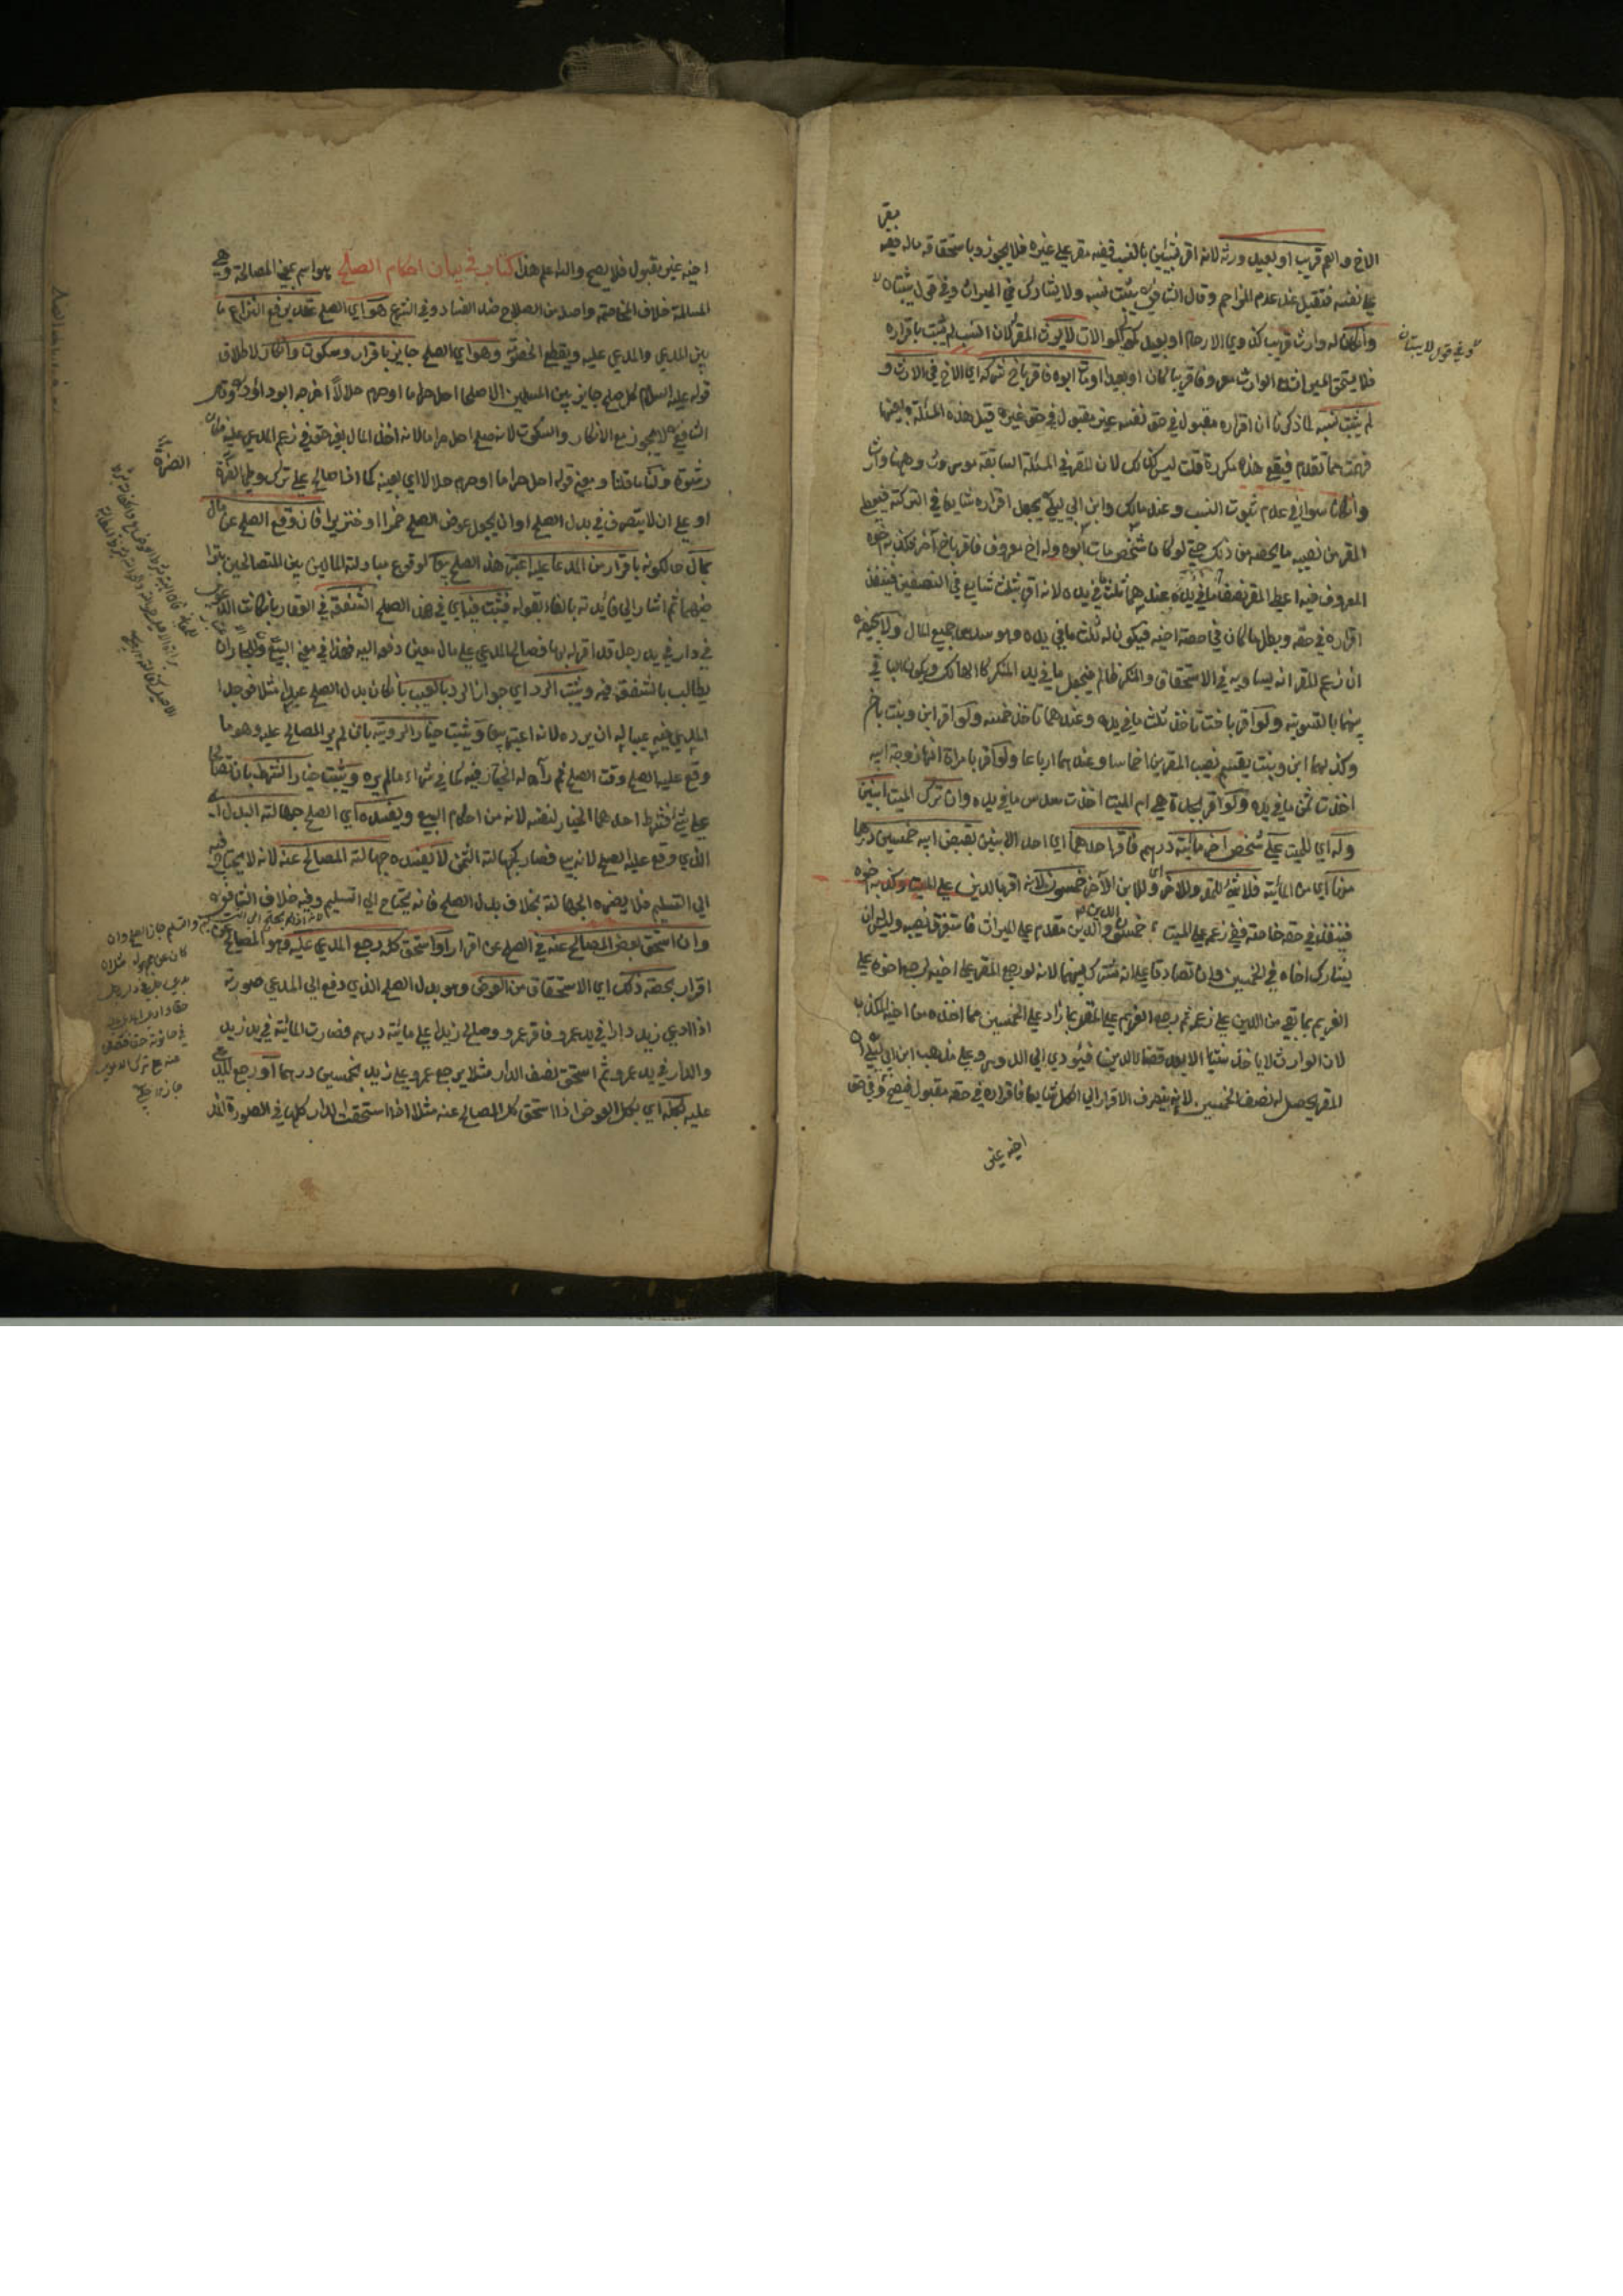 الاخ والعم قريب او بعيد ورثه لانه اقر بشيئين بالنسب ففيه مقر على غيره فلا يجوز وباستحقاق ماله ففيه يقر
على نفسه فتقبل عند عدم المزاحم وقال الشافعي يثبت نسبه ولا يشارك في الميراث وفي قول يثبتان
وفي قول لا يثبتان
وان كان له وارث قريب كذوي الارحام او بعيد كمولى الموالات لا يرث المقر له لان النسب لم يثبت باقراره
فلا يستحق الميراث مع الوارث معروفا قريبا كان او بعيدا ومن مات ابوه فاقر باخ شركه اي الاخ في الارث و
لم يثبت نسبه لما ذكرنا ان اقراره مقبول في حق نفسه غير مقبول في حق غيره قيل هذه المسئلة بعينها
فهمت مما تقدم فيقع هذه مكررة قلت ليس كذلك لان المقر في المسئلة السابقة مورث وههنا وارث
وان كانا سواء في عدم ثبوت النسب وعند مالك وابن ابي ليلى يجعل اقراره شايعا في التركة فيعطي
المقر من نصيبه ما يخصه من ذلك حتى لو كان شخص مات ابوه وله اخ معروف فاقر باخ آخر فكذبه اخوه
المعروف فيه اعطى المقر نصف ما في يده وعندهما ثلث ما في يده لانه اقر بثلث شايع في النصفين فينفذ
اقراره في حقه وبطل ما كان في حصة اخيه فيكون له ثلث ما في يده وهو سدس جميع المال ولابي حنيفة
ان زعم المقر انه يساويه في الاستحقاق والمنكر ظالم فيجعل ما في يد المنكر كالهالك ويكون الباقي
بينهما بالتسوية ولو اقر باخت تاخذ ثلث ما في يده وعندهما تاخذ خمسه ولو اقر ابن وبنت باخ
وكذبهما ابن وبنت يقسم نصيب المقرين اخماسا وعندهما ارباعا ولو اقر بامراة انها زوجة ابيه
اخذت ثمن ما في يده ولو اقر بجدة هي ام الميت اخذت سدس ما في يده وان ترك الميت ابنين
وله اي للميت على شخص آخر مائة درهم فاقر احدهما اي احد الابنين بقبض ابيه خمسين درهما
منها اي من المائة فلا شئ للمقر وللآخر اي وللابن الآخر خمسون لانه اقر بالدين على الميت وكذبه اخوه
فينفذ في حقه خاصة ففي زعمه على الميت خمسون والدين مقدم على الميراث فاستغرق نصيبه وليس له ان
يشارك اخاه في الخمسين وان تصادقا على انه مشترك بينهما لانه لو رجع المقر على اخيه لرجع اخوه على
الغريم بما بقي من الدين على زعمه ثم يرجع الغريم على المقر بما زاد على الخمسين مما اخذه من اخيه المكذب
لان الوارث لا ياخذ شيئا الا بعد قضاء الدين فيؤدي الى الدور وعلى مذهب ابن ابي ليلى
المقر يحصل له نصف الخمسين لانه يتصرف الاقرار الى الكل شايعا فاقراره في حقه مقبول فيصح وفي حق
اخيه غير
اخيه غير مقبول فلا يصح والله اعلم هذا كتاب في بيان احكام الصلح هو اسم بمعنى المصالحة وهي
المسالمة خلاف المخاصمة واصله من الصلاح ضد الفساد وفي الشرع هو اي الصلح عقد يرفع النزاع ما
بين المدعي والمدعى عليه ويقطع الخصومة وهو اي الصلح جايز باقرار وسكوت وانكار لاطلاق
قوله عليه السلام كل صلح جايز بين المسلمين الا صلحا احل حراما او حرم حلالا اخرجه ابو داود وقال
الشافعي لا يجوز مع الانكار والسكوت لانه صلح احل حراما لانه اخذ المال بغير حق في زعم المدعى عليه فكان
رشوة ولنا ما قلنا ومعنى قوله احل حراما او حرم حلالا اي بعينه كما اذا صالح على ترك وطئ الضرة
او على ان لا يتصرف في بدل الصلح او ان يجعل عوض الصلح خمرا او خنزيرا فان وقع الصلح عن مال
بمال حال كونه باقرار من المدعا عليه اعتبر هذا الصلح بيعا لوقوع مبادلة المالين بين المتصالحين بتراضيهما
ثم اشار الى فائدته بالفاء بقوله فيثبت فيه اي في هذا الصلح الشفعة في العقار بان كانت الدعوى
في دار في يد رجل قد اقر له بها فصالح المدعي على مال معين دفعه اليه فهذا في معنى البيع وللجار ان
يطالب بالشفعة فيه ويثبت الرد اي جواز الرد بالعيب بان كان بدل الصلح عبدا مثلا فوجد
المدعي فيه عيبا له ان يرده لانه اعتبر بيعا ويثبت خيار الرؤية بان لم ير المصالح عليه وهو ما
وقع عليه الصلح وقت الصلح ثم رآه له الخيار فيه كما في شراء ما لم يره ويثبت خيار الشرط بان تصالحا
على شئ فشرط احدهما الخيار لنفسه لانه من احكام البيع ويفسده اي الصلح جهالة البدل
الذي وقع عليه الصلح لانه بيع فصار كجهالة الثمن لا يفسده جهالة المصالح عنه لانه لا يحتاج فيه
الى التسليم فلا يضره الجهالة بخلاف بدل الصلح فانه يحتاج الى التسليم وفيه خلاف الشافعي
وان استحق بعض المصالح عنه في الصلح عن اقرار او استحق كله رجع المدعى عليه وهو المصالح
اقرار بحصة ذلك اي الاستحقاق من العوض وهو بدل الصلح الذي دفع الى المدعي صورته
اذا ادعى زيد دارا في يد عمرو فاقر عمرو وصالح زيدا على مائة درهم فصارت المائة في يد زيد
والدار في يد عمرو ثم استحق نصف الدار مثلا يرجع عمرو على زيد بخمسين درهما او رجع المدعى
عليه بكله اي بكل العوض اذا استحق كل المصالح عنه مثلا اذا استحقت الدار كلها في الصورة
الضرة